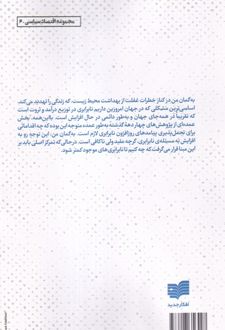 مجموعه اقتصاد سیاسی ـ ۶
به‌گمان من، در کنار خطرات غفلت از بهداشت محیط زیست، که زندگی را تهدید می‌کند،
اساسی‌ترین مشکلی که در جهان امروزین داریم نابرابری در توزیع درآمد و ثروت است
که تقریباً در همه‌جای جهان و به‌طور دائمی در حال افزایش است. بااین‌همه، بخش
عمده‌ای از پژوهش‌های چهار دهۀ گذشته به‌طور عمده متوجه این بوده که چه اقداماتی
برای تحمل‌پذیری پیامدهای روزافزون نابرابری لازم است. به‌گمان من، این توجه رو به
نابرابری به مسئله‌ی نابرابری، گرچه مفید ولی ناکافی است. درحالی‌که تمرکز اصلی باید بر
این مبنا قرار می‌گرفت که چه کنیم تا نابرابری‌های موجود کمتر شود.
افکار جدید